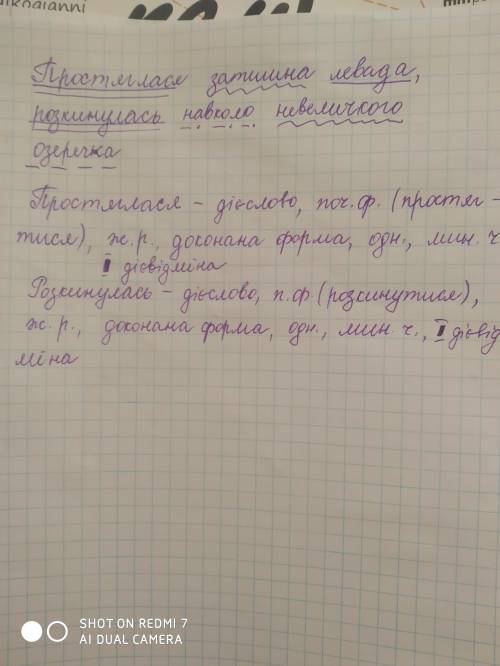 Простяглася затишна левада,
розкинулась навколо невеличкого
озеречка
Простяглася – дієслово, поч. ф. (простяг-
тися), ж. р., доконана форма, одн., мин. ч
I дієвідміна
Розкинулась – дієслово, п. ф (розкинутися),
ж. р., доконана форма, одн., мин. ч., I дієвід
міна
SHOT ON REDMI 7
AI DUAL CAMERA